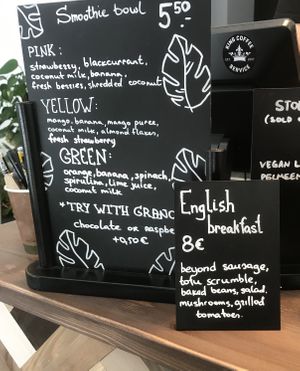 Smoothie bowl 5.50.-
PINK:
strawberry, blackcurrant,
coconut milk, banana,
fresh berries, shredded coconut
YELLOW:
mango, banana, mango puree,
coconut milk, almond flakes,
fresh strawberry
GREEN:
orange, banana, spinach,
spirulina, lime juice,
coconut milk
*TRY WITH GRANO
chocolate or raspbe
+0,50€
KING COFFEE
SERVICE
STO
(SOLD
VEGAN
PELMEEN
English
breakfast
8€
beyond sausage,
tofu scrumble,
baked beans, salad,
mushrooms, grilled
tomatoes.